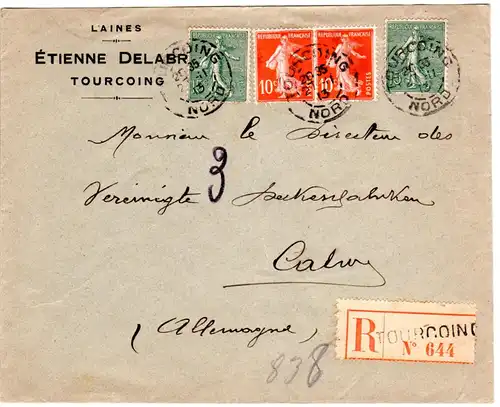 LAINES
ÉTIENNE DELABR
TOURCOING
RÉPUBLIQUE FRANÇAISE
10c 10c
POSTES
TOURCOING
NORD
TOURCOING
NORD
TOURCOING
NORD
Monsieur le Directeur des
Vereinigte Deckenfabriken
3
Calw
(Allemagne)
R TOURCOING
N° 644
838